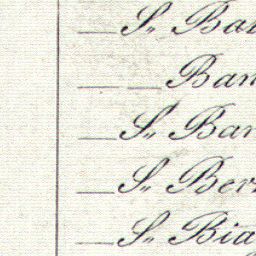 — S.,, Bal
— — Ban
— S.,, Bar
— S.,, Ber
— S.,, Bia